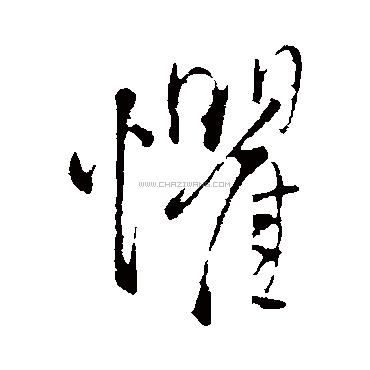 懼
WWW.CHAZIWANG.COM